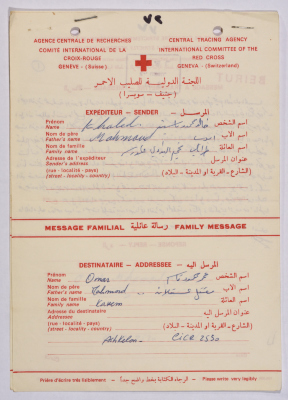 AGENCE CENTRALE DE RECHERCHES
COMITÉ INTERNATIONAL DE LA
CROIX-ROUGE
GENÈVE - (Suisse)
CENTRAL TRACING AGENCY
INTERNATIONAL COMMITTEE OF THE
RED CROSS
GENEVA - (Switzerland)
اللجنة الدولية للصليب الاحمر
(جنيف - سويسرا)
EXPEDITEUR - SENDER - المرسل
Prénom
Name Khaled اسم الشخص
Nom de père
Father's name Mahmoud اسم الاب
Nom de famille
Family name اسم العائلة
Adresse de l'expéditeur
Sender's address عنوان المرسل
(rue - locality - pays)
(street - locality - country) (الشارع - القرية او المدينة - البلاد)
MESSAGE FAMILIAL رسالة عائلية FAMILY MESSAGE
DESTINATAIRE - ADDRESSEE - المرسل اليه
Prénom
Name Omar اسم الشخص
Nom de père
Father's name Mahmoud اسم الاب
Nom de famille
Family name Kasem اسم العائلة
Adresse du destinataire
Addressee عنوان المرسل اليه
(rue - localité - pays)
(street - locality - country) (الشارع - القرية او المدينة - البلاد)
Ashkelon CICR 2550
Prière d'écrire très lisiblement - الرجاء الكتابة بخط واضح جداً - Please write very legibly